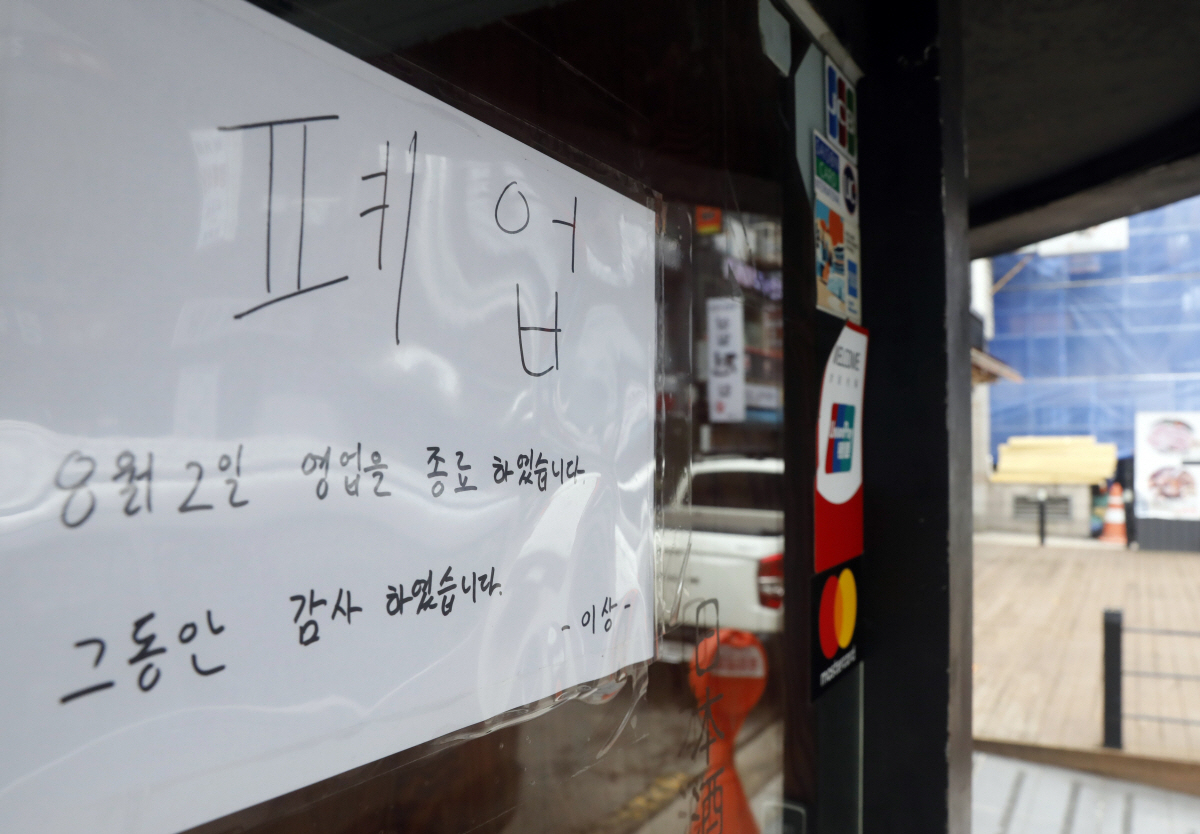 폐업
8월 2일 영업을 종료 하였습니다.
그동안 감사 하였습니다.
- 이상 -
JCB
WELCOME
UnionPay
mastercard
日本酒